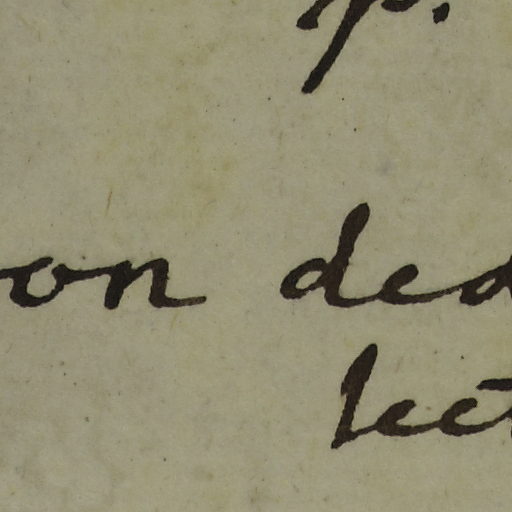 p.
on ded
lect